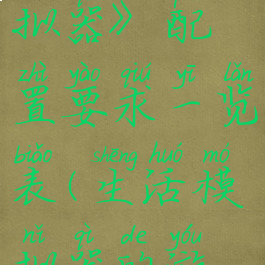 拟器》配
zhì yào qiú yī lǎn
置要求一览
biǎo shēng huó mó
表(生活模
nǐ qì de yóu
拟器的游